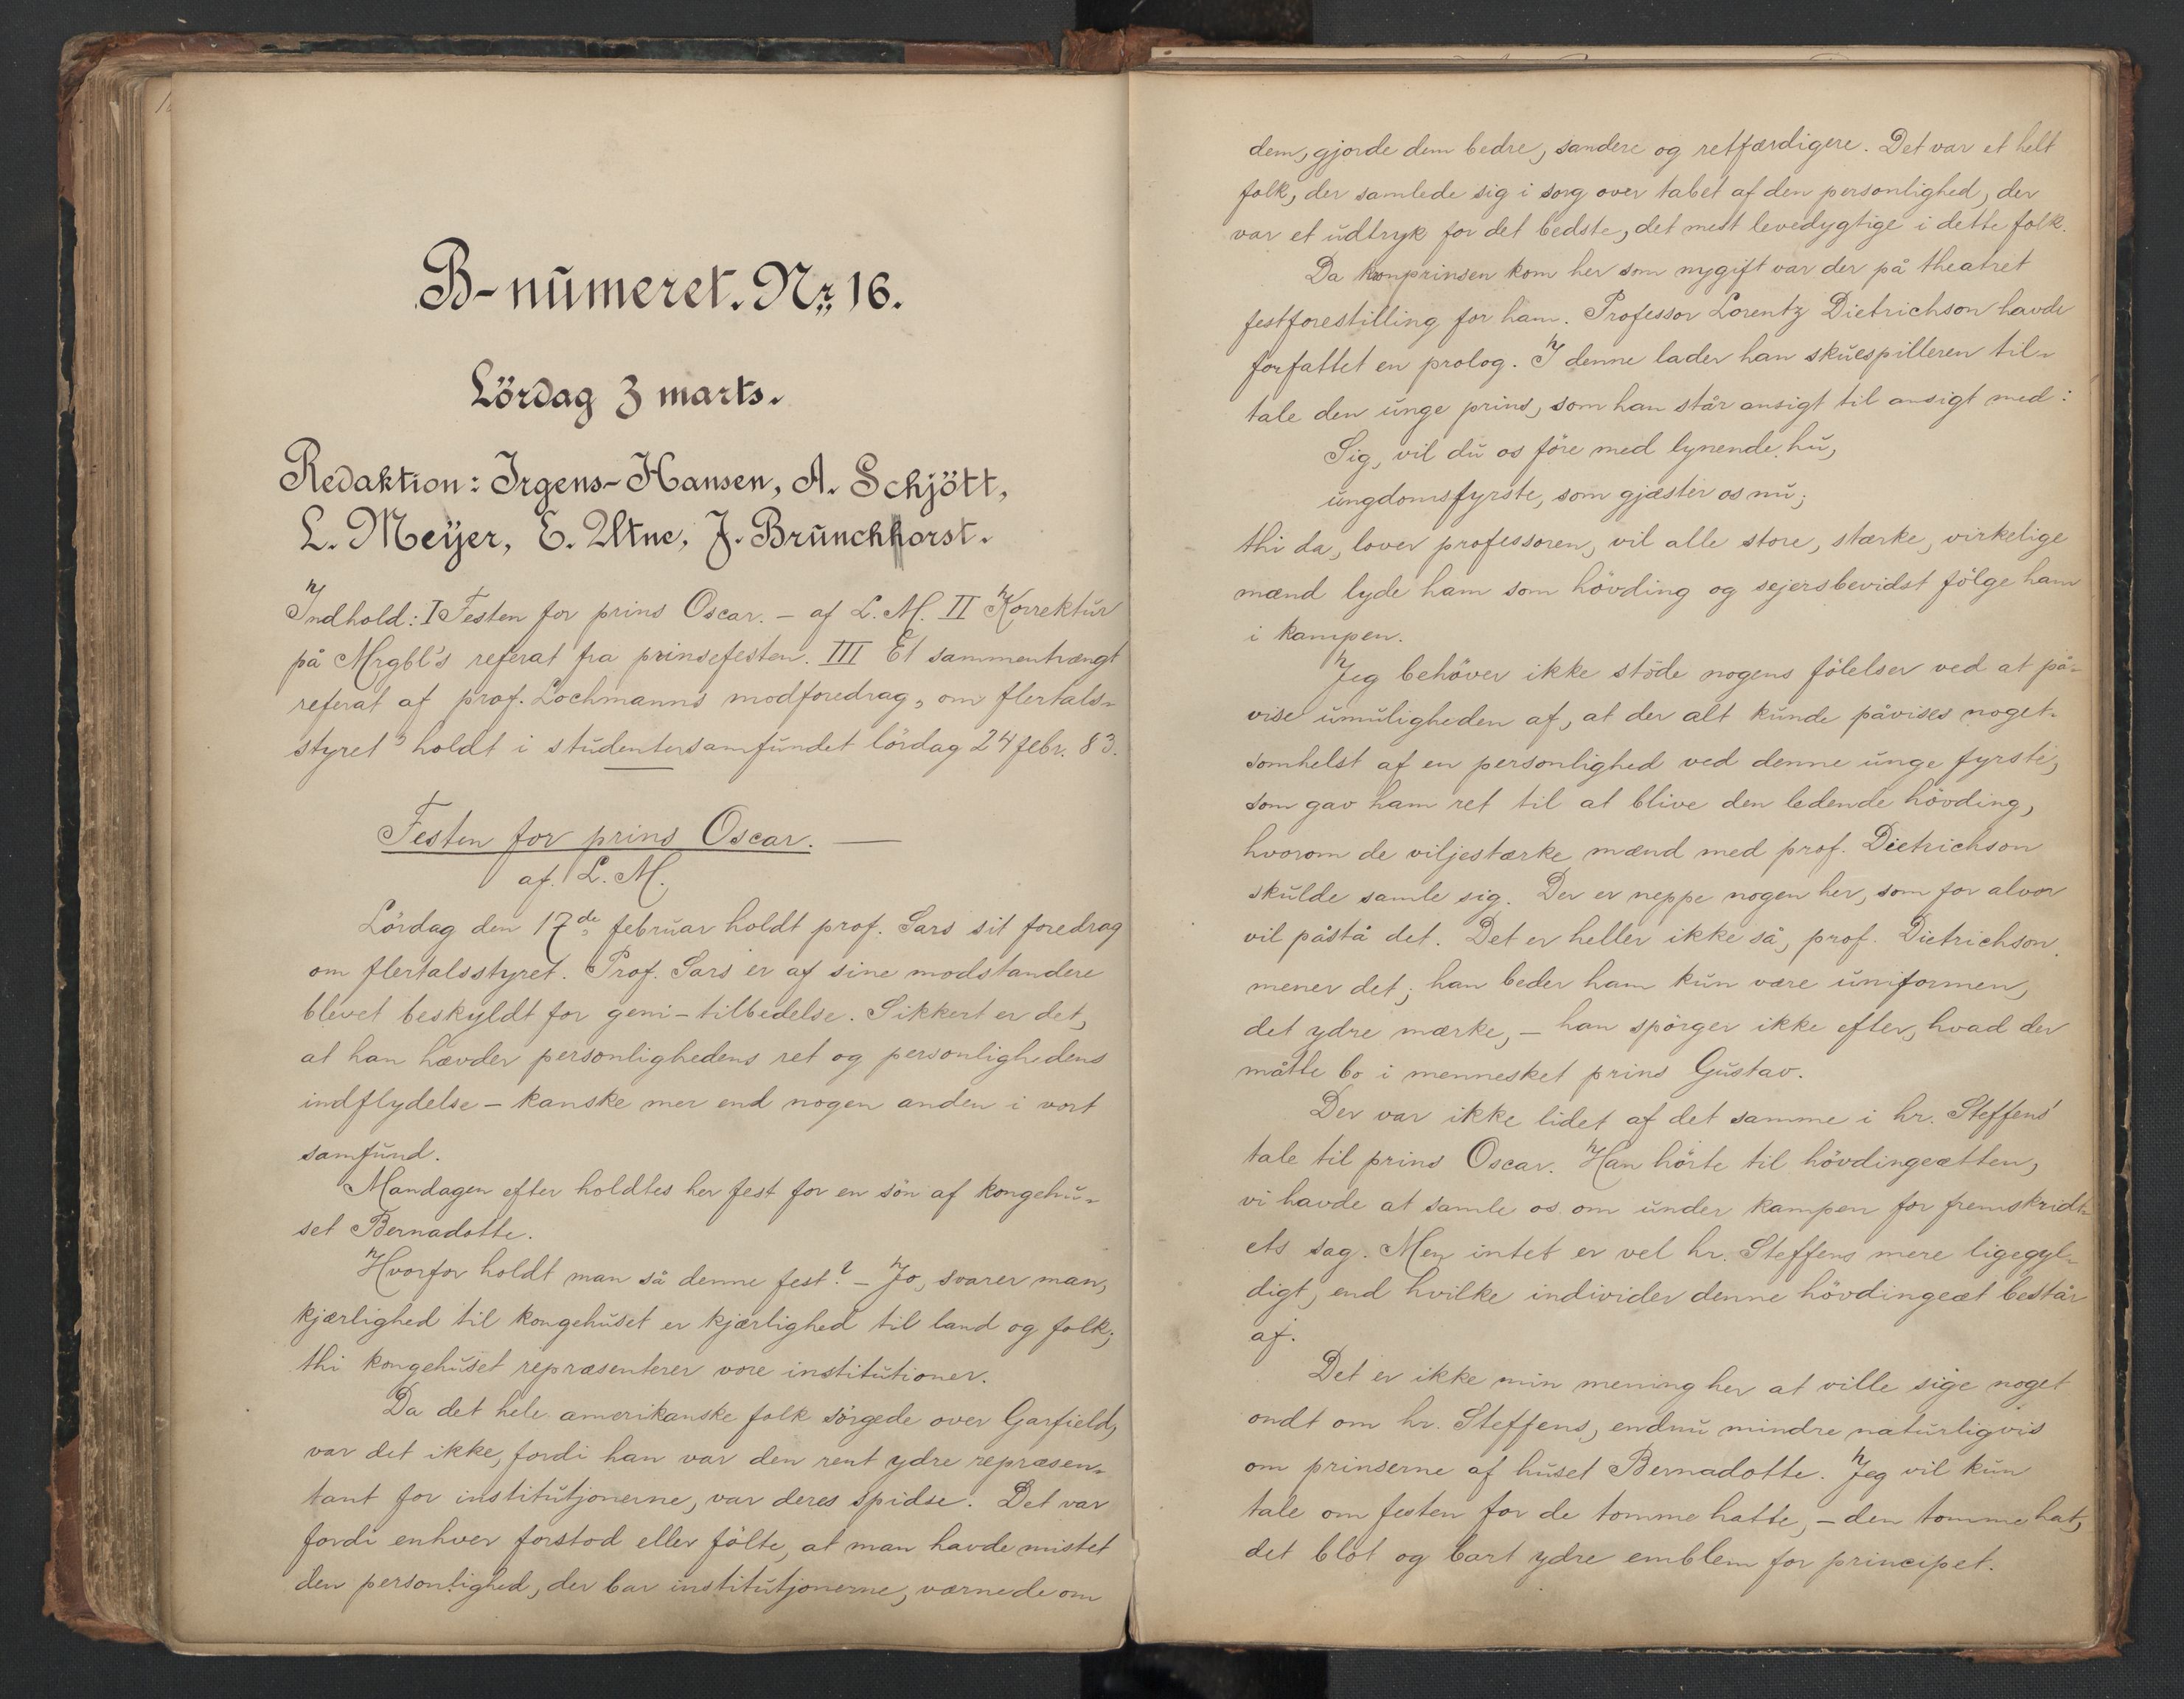 B-numeret. Nr. 16.
Lördag 3 marts.
Redaktion: Irgens-Hansen, A. Schjött,
L. Meyer, E. Utne, J. Brunchhorst.
Indhold: I Festen for prins Oscar. – af L. M. II Korrektur
på Mrgbl's referat fra prinsefesten. III Et sammentrængt
referat af prof. Lochmanns modforedrag „om flertals-
styret" holdt i studentersamfundet lördag 24 febr. 83.
Festen for prins Oscar. —
af L. M.
Lördag den 17de februar holdt prof. Sars sit foredrag
om flertalsstyret. Prof. Sars er af sine modstandere
blevet beskyldt for geni-tilbedelse. Sikkert er det,
at han hævder personlighedens ret og personlighedens
indflydelse – kanske mer end nogen anden i vort
samfund.
Mandagen efter holdtes her fest for en sön af kongehu-
set Bernadotte.
Hvorfor holdt man så denne fest? – Jo, svarer man,
kjærlighed til kongehuset er kjærlighed til land og folk;
thi kongehuset repræsenterer vore institutioner.
Da det hele amerikanske folk sörgede over Garfield,
var det ikke, fordi han var den rent ydre repræsen-
tant for institutjonerne, var deres spidse. Det var
fordi enhver forstod eller fölte, at man havde mistet
den personlighed, der bar institutjonerne, værnede om
dem, gjorde dem bedre, sandere og retfærdigere. Det var et helt
folk, der samlede sig i sorg over tabet af den personlighed, der
var et udtryk for det bedste, det mest levedygtige i dette folk.
Da kronprinsen kom her som nygift var der på theatret
festforestilling for ham. Professor Lorentz Dietrichson havde
forfattet en prolog. I denne lader han skuespilleren til-
tale den unge prins, som han står ansigt til ansigt med:
Sig, vil du os före med lynende hu,
ungdomsfyrste, som gjæster os nu;
thi da, lover professoren, vil alle store, stærke, virkelige
mænd lyde ham som hövding og sejersbevidst fölge ham
i kampen.
Jeg behöver ikke stöde nogens fölelser ved at på-
vise umuligheden af, at der alt kunde påvises noget-
somhelst af en personlighed ved denne unge fyrste,
som gav ham ret til at blive den ledende hövding,
hvorom de viljestærke mænd med prof. Dietrichson
skulde samle sig. Der er neppe nogen her, som for alvor
vil påstå det. Det er heller ikke så, prof. Dietrichson
mener det; han beder ham kun være uniformen,
det ydre mærke, – han spörger ikke efter, hvad der
måtte bo i mennesket prins Gustav.
Der var ikke lidet af det samme i hr. Steffens'
tale til prins Oscar. Han hörte til hövdingeætten,
vi havde at samle os om under kampen for fremskridt-
ets sag. Men intet er vel hr. Steffens mere ligegyl-
digt, end hvilke individer denne hövdingeæt består
af.
Det er ikke min mening her at ville sige noget
ondt om hr. Steffens, endnu mindre naturligvis
om prinserne af huset Bernadotte. Jeg vil kun
tale om festen for de tomme hatte, – den tomme hat,
det blot og bart ydre emblem for principet.